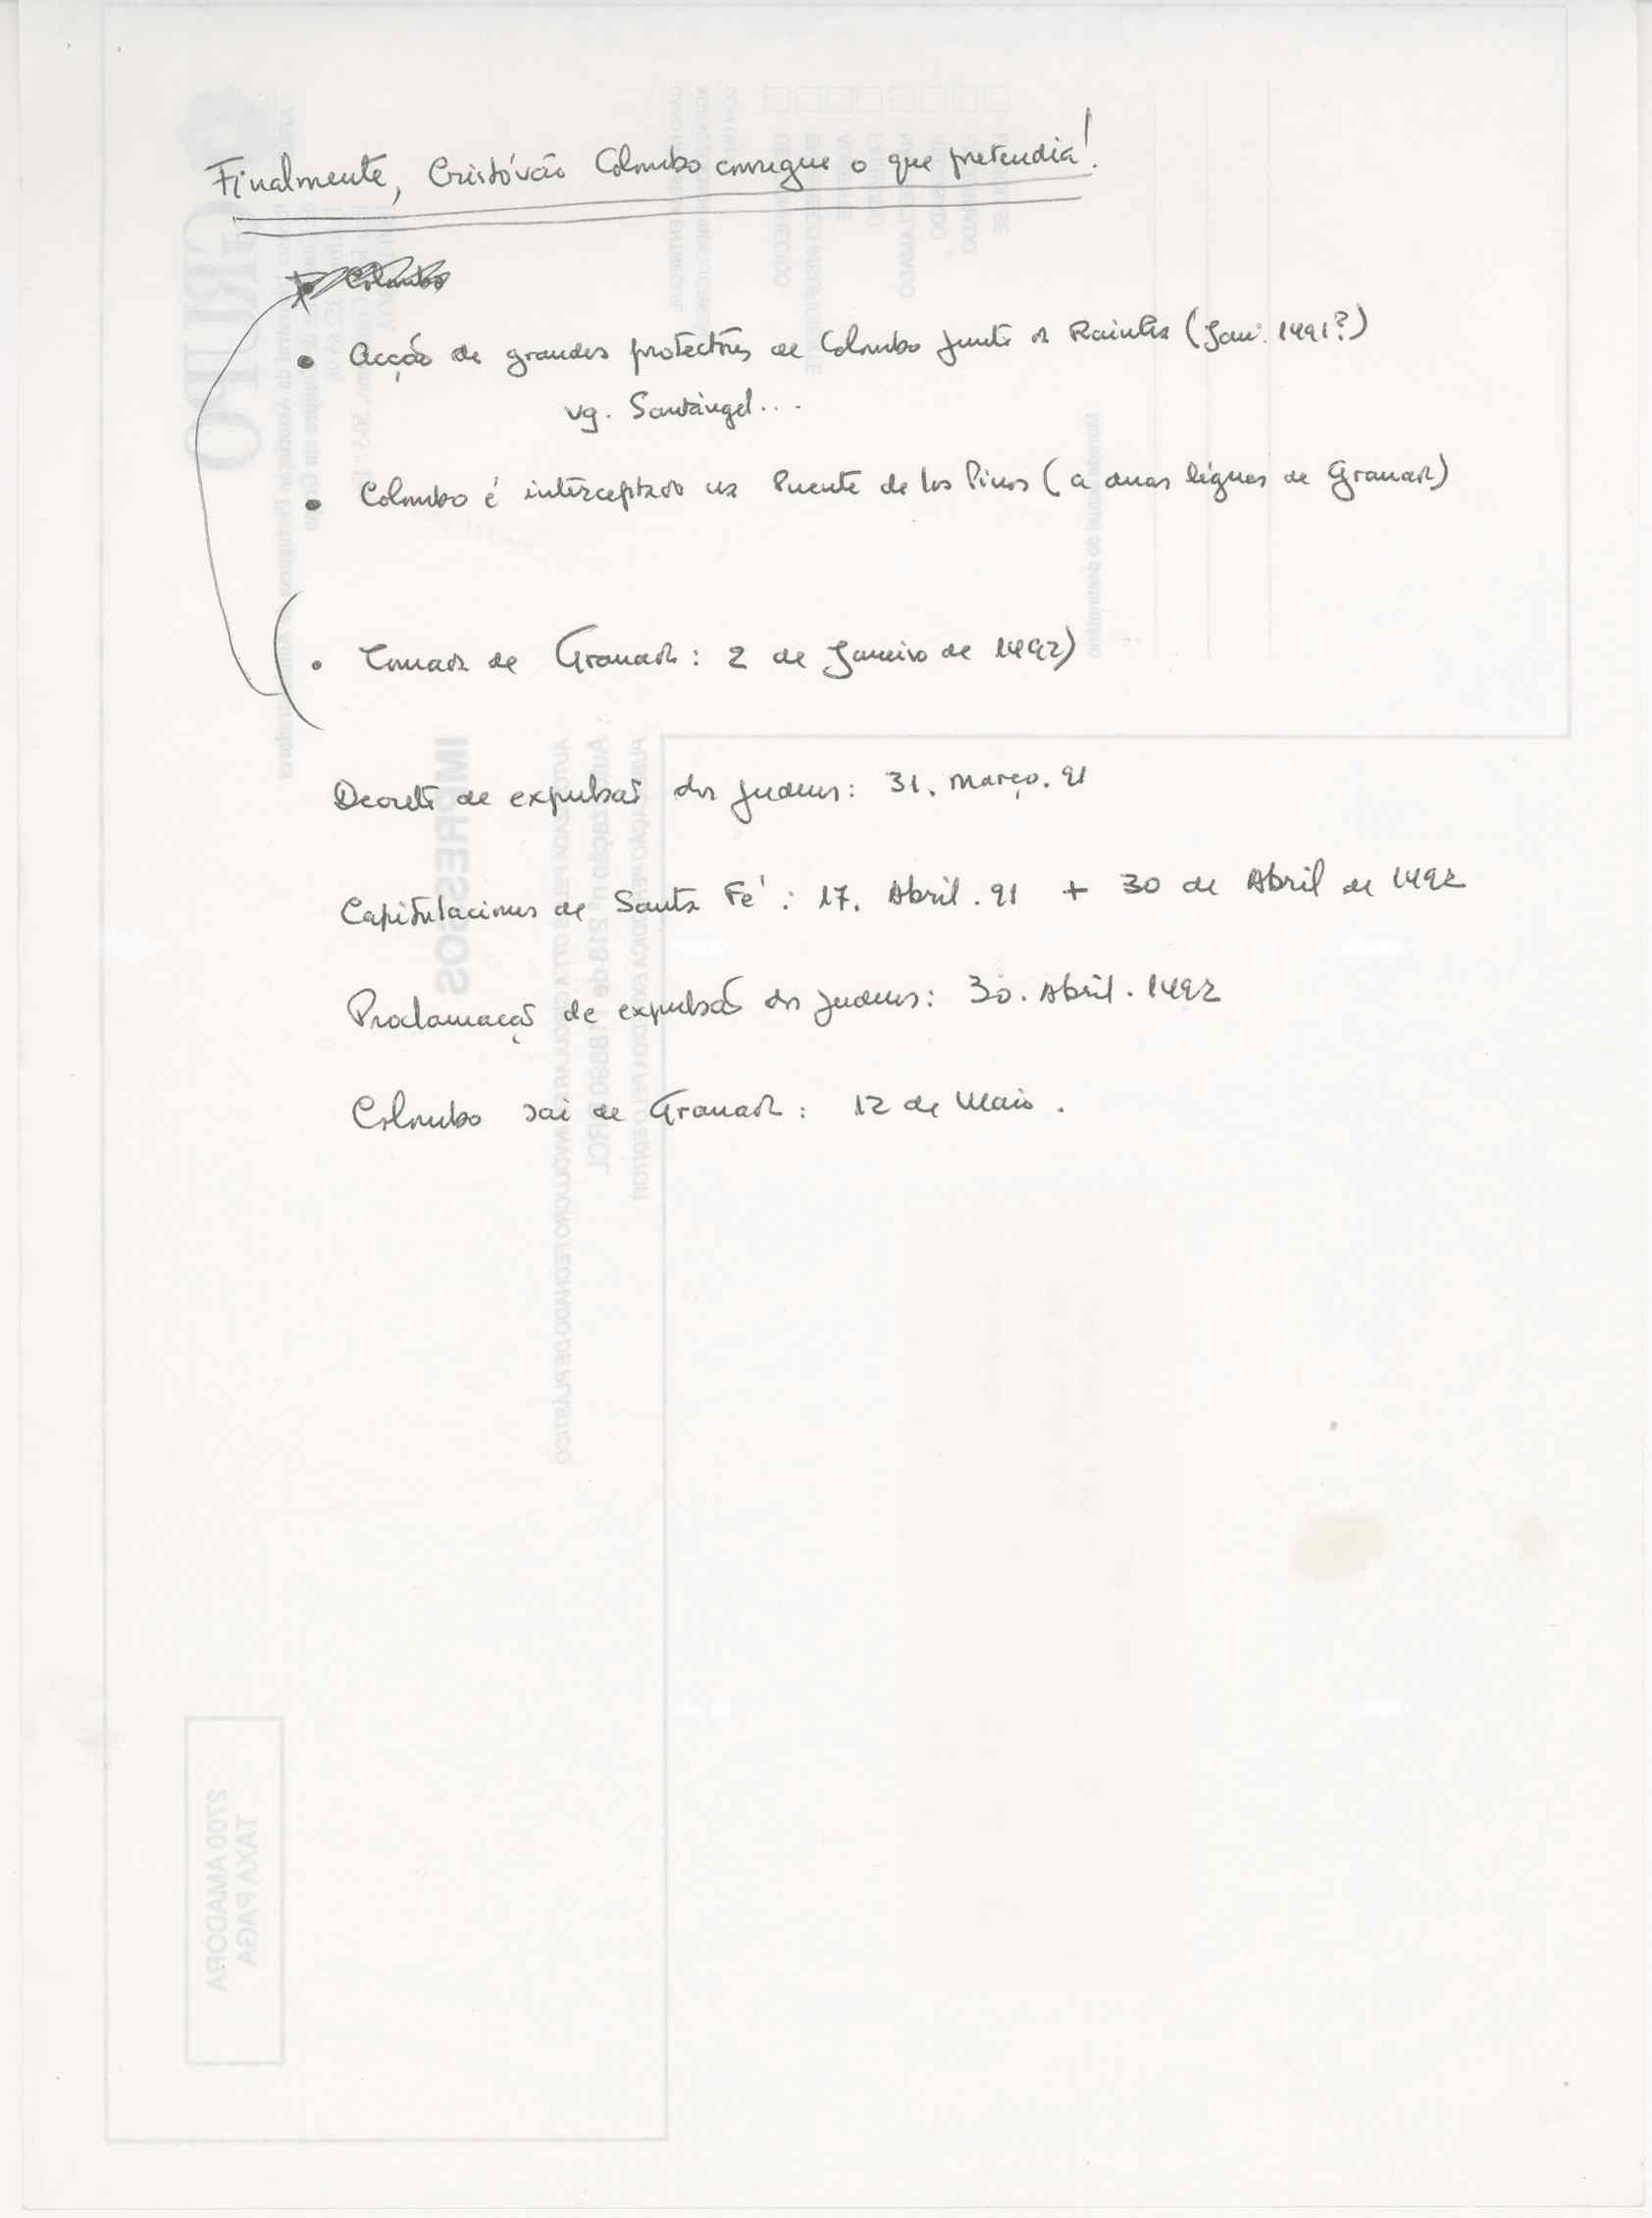 Finalmente, Cristóvão Colombo consegue o que pretendia!
Colombo
• Acção de grandes protectores de Colombo junto da Rainha (Jan. 1491?)
vg. Santángel...
• Colombo é interceptado na Puente de los Pinos (a duas léguas de Granada)
(• Tomada de Granada: 2 de Janeiro de 1492)
Decreto de expulsão dos judeus: 31. Março. 91
Capitulaciones de Santa Fé: 17. Abril. 91 + 30 de Abril de 1492
Proclamação de expulsão dos judeus: 30. Abril. 1492
Colombo sai de Granada: 12 de Maio.
IMPRESSOS
TAXA PAGA
2700 AMADORA